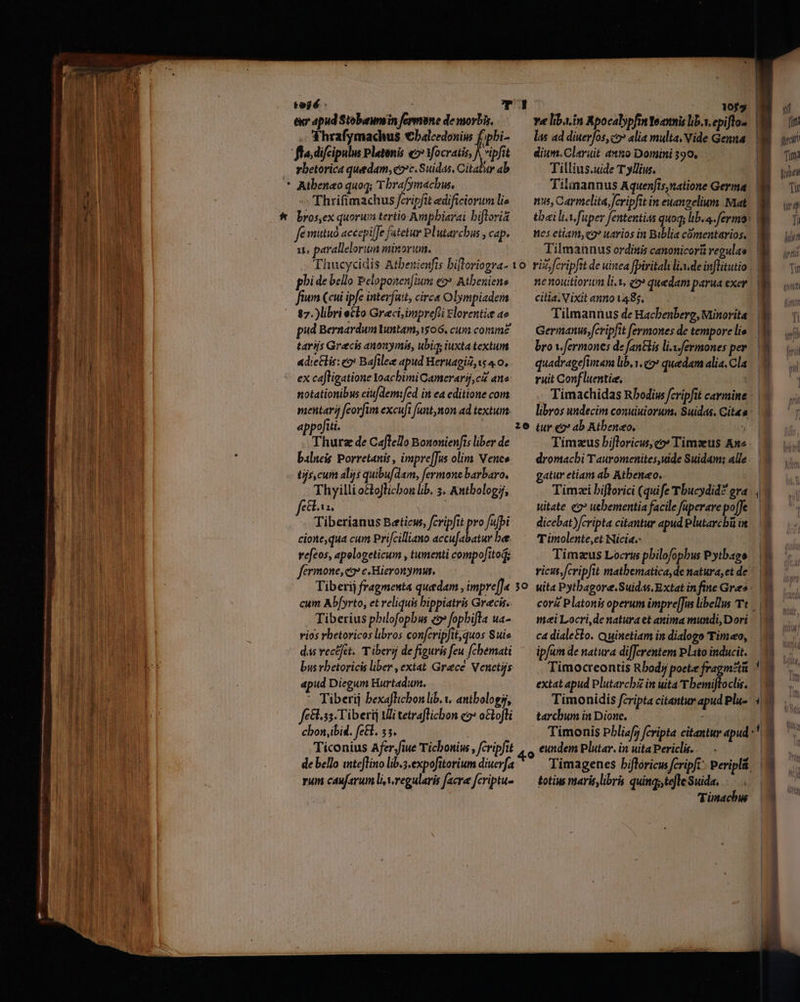 1056 T
exr apud Stobaeum in sermone de morbis.
Thrasymachus Chalcedonius sophi-
sta, discipulus Platonis & Isocratis, scripsit
rhetorica quædam, &c. Suidas. Citatur ab
Athenæo quoq; Thrasymachus.
Thrisimachus scripsit ædificiorum li-
bros, ex quorum tertio Amphiarai historiã
se mutuò accepisse fatetur Plutarchus, cap.
11. parallelorum minorum.
Thucycidis Atheniensis historiogra-
phi de bello Peloponensium & Athenien-
sium (cui ipse interfuit, circa Olympiadem
87.) libri octo Græci, impressi Florentiæ a-
pud Bernardum Iuntam, 1506. cum commẽ
tarijs Græcis anonymis, ubiq; iuxta textum
adiectis: & Basileæ apud Heruagiũ, 1540.
ex castigatione Ioachimi Camerarij, cũ an-
notationibus eiusdem: sed in ea editione com
mentarij seorsim excusi sunt, non ad textum
appositi.
Thuræ de Castello Bononiensis liber de
balneis Porretanis, impressus olim Vene-
tijs, cum alijs quibusdam, sermone barbaro.
Thyilli octostichon lib. 3. Anthologij,
sect. 12.
Tiberianus Bæticus, scripsit pro suspi
cione, qua cum Prisciliano accusabatur hæ
reseos, apologeticum, tumenti compositoq;
sermone, & c. Hieronymus.
Tiberij fragmenta quædam, impressa
cum Absyrto, et reliquis hippiatris Græcis.
Tiberius philosophus & sophista ua-
rios rhetoricos libros conscripsit, quos Sui-
das recẽset. Tiberij de figuris seu schemati
bus rhetoricis liber, extat Græcè Venetijs
apud Diegum Hurtadum.
Tiberij hexastichon lib. 1. anthologij,
sect. 33. Tiberij Illi tetrastichon & octosti
chon, ibid. sect. 33.
Ticonius Afer, siue Tichonius, scripsit
de bello intestino lib. 3. expositorium diuersa
rum causarum li. 1. regularis sacræ scriptu-
I 1057
ræ lib. 1. in Apocalypsin Ioannis lib. 1. episto-
las ad diuersos, & alia multa. Vide Genna
dium. Claruit anno Domini 390.
Tillius. uide Tyllius.
Tilmannus Aquensis, natione Germa
nus, Carmelita, scripsit in euangelium Mat
thæi li. 1. super sententias quoq; lib. 4. sermo
nes etiam, & uarios in Biblia cõmentarios.
Tilmannus ordinis canonicorũ regula-
riũ, scripsit de uinea spirituali li. 1. de institutio
ne nouitiorum li. 1. & quædam parua exer
citia. Vixit anno 1485.
Tilmannus de Hachenberg, Minorita
Germanus, scripsit sermones de tempore li-
bro 1. sermones de sanctis li. 1. sermones per
quadragesimam lib. 1. & quædam alia. Cla
ruit Confluentiæ.
Timachidas Rhodius scripsit carmine
libros undecim conuiuiorum, Suidas. Cita-
tur & ab Athenæo.
Timæus historicus, & Timæus An-
dromachi Tauromenites, uide Suidam: alle
gatur etiam ab Athenæo.
Timæi historici (qui se Thucydidẽ gra
uitate & uehementia facile superare posse
dicebat) scripta citantur apud Plutarchũ in
Timolente, et Nicia.
Timæus Locrus philosophus Pythago
ricus, scripsit mathematica, de natura, et de
uita Pythagoræ. Suidas. Extat in fine Græ-
corũ Platonis operum impressus libellus Ti
mæi Locri, de natura et anima mundi, Dori
ca dialecto. Quinetiam in dialogo Timæo,
ipsum de natura disserentem Plato inducit.
Timocreontis Rhodij poetæ fragmẽtũ
extat apud Plutarchũ in uita Themistoclis.
Timonidis scripta citantur apud Plu-
tarchum in Dione.
Timonis Phliasij scripta citantur apud
eundem Plutar. in uita Periclis.
Timagenes historicus scripsit Periplũ
totius maris, libris quinq;, teste Suida.
Timachus
10
20
30
40